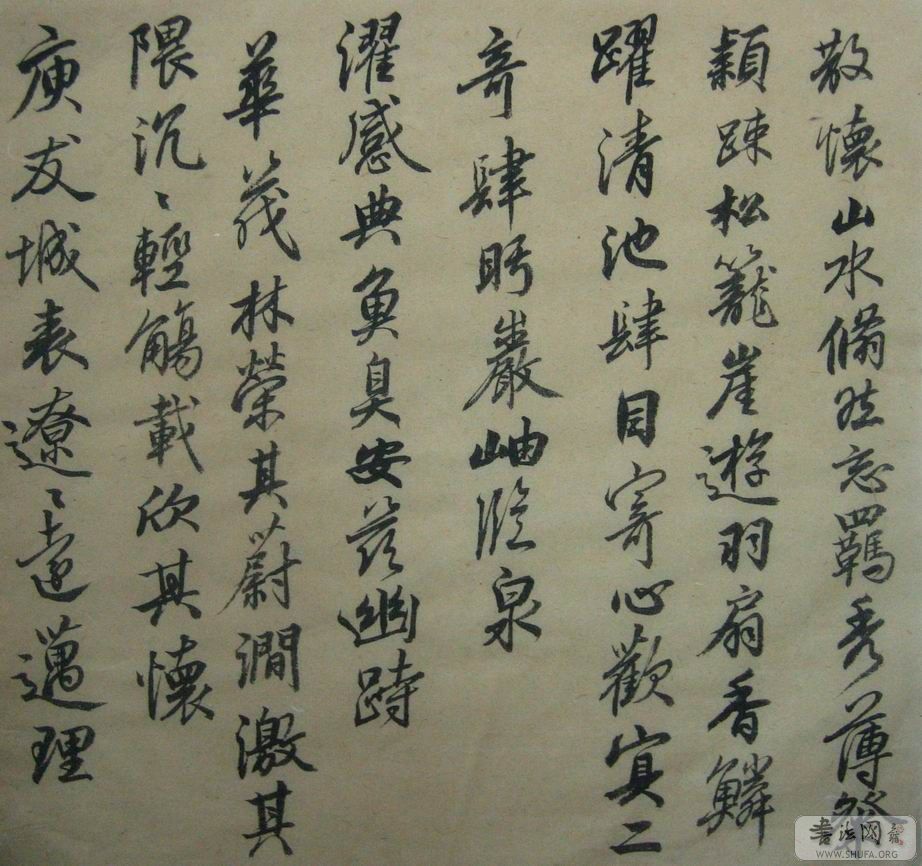 散懷山水備然忘羈秀薄粲
穎踈松籠崖遊羽扇香鱗
躍清池肆目寄心歡寘二
奇肆眄巖岫臨泉
濯感典魚臭安茲幽跱
華茂林榮其蔚澗激其
隈沉〻輕觴載欣其懷
庾友城表遼〻遠邁理
書法网
WWW.SHUFA.ORG